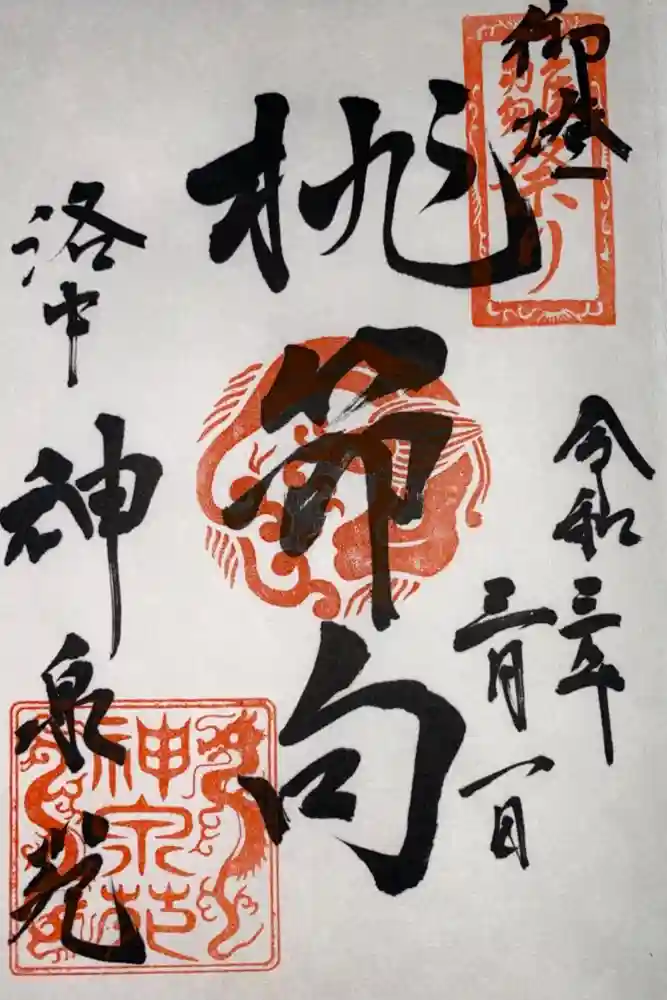 御燈
雛祭り
令和三年
三月一日
桃節句
洛中
神泉苑
神泉苑